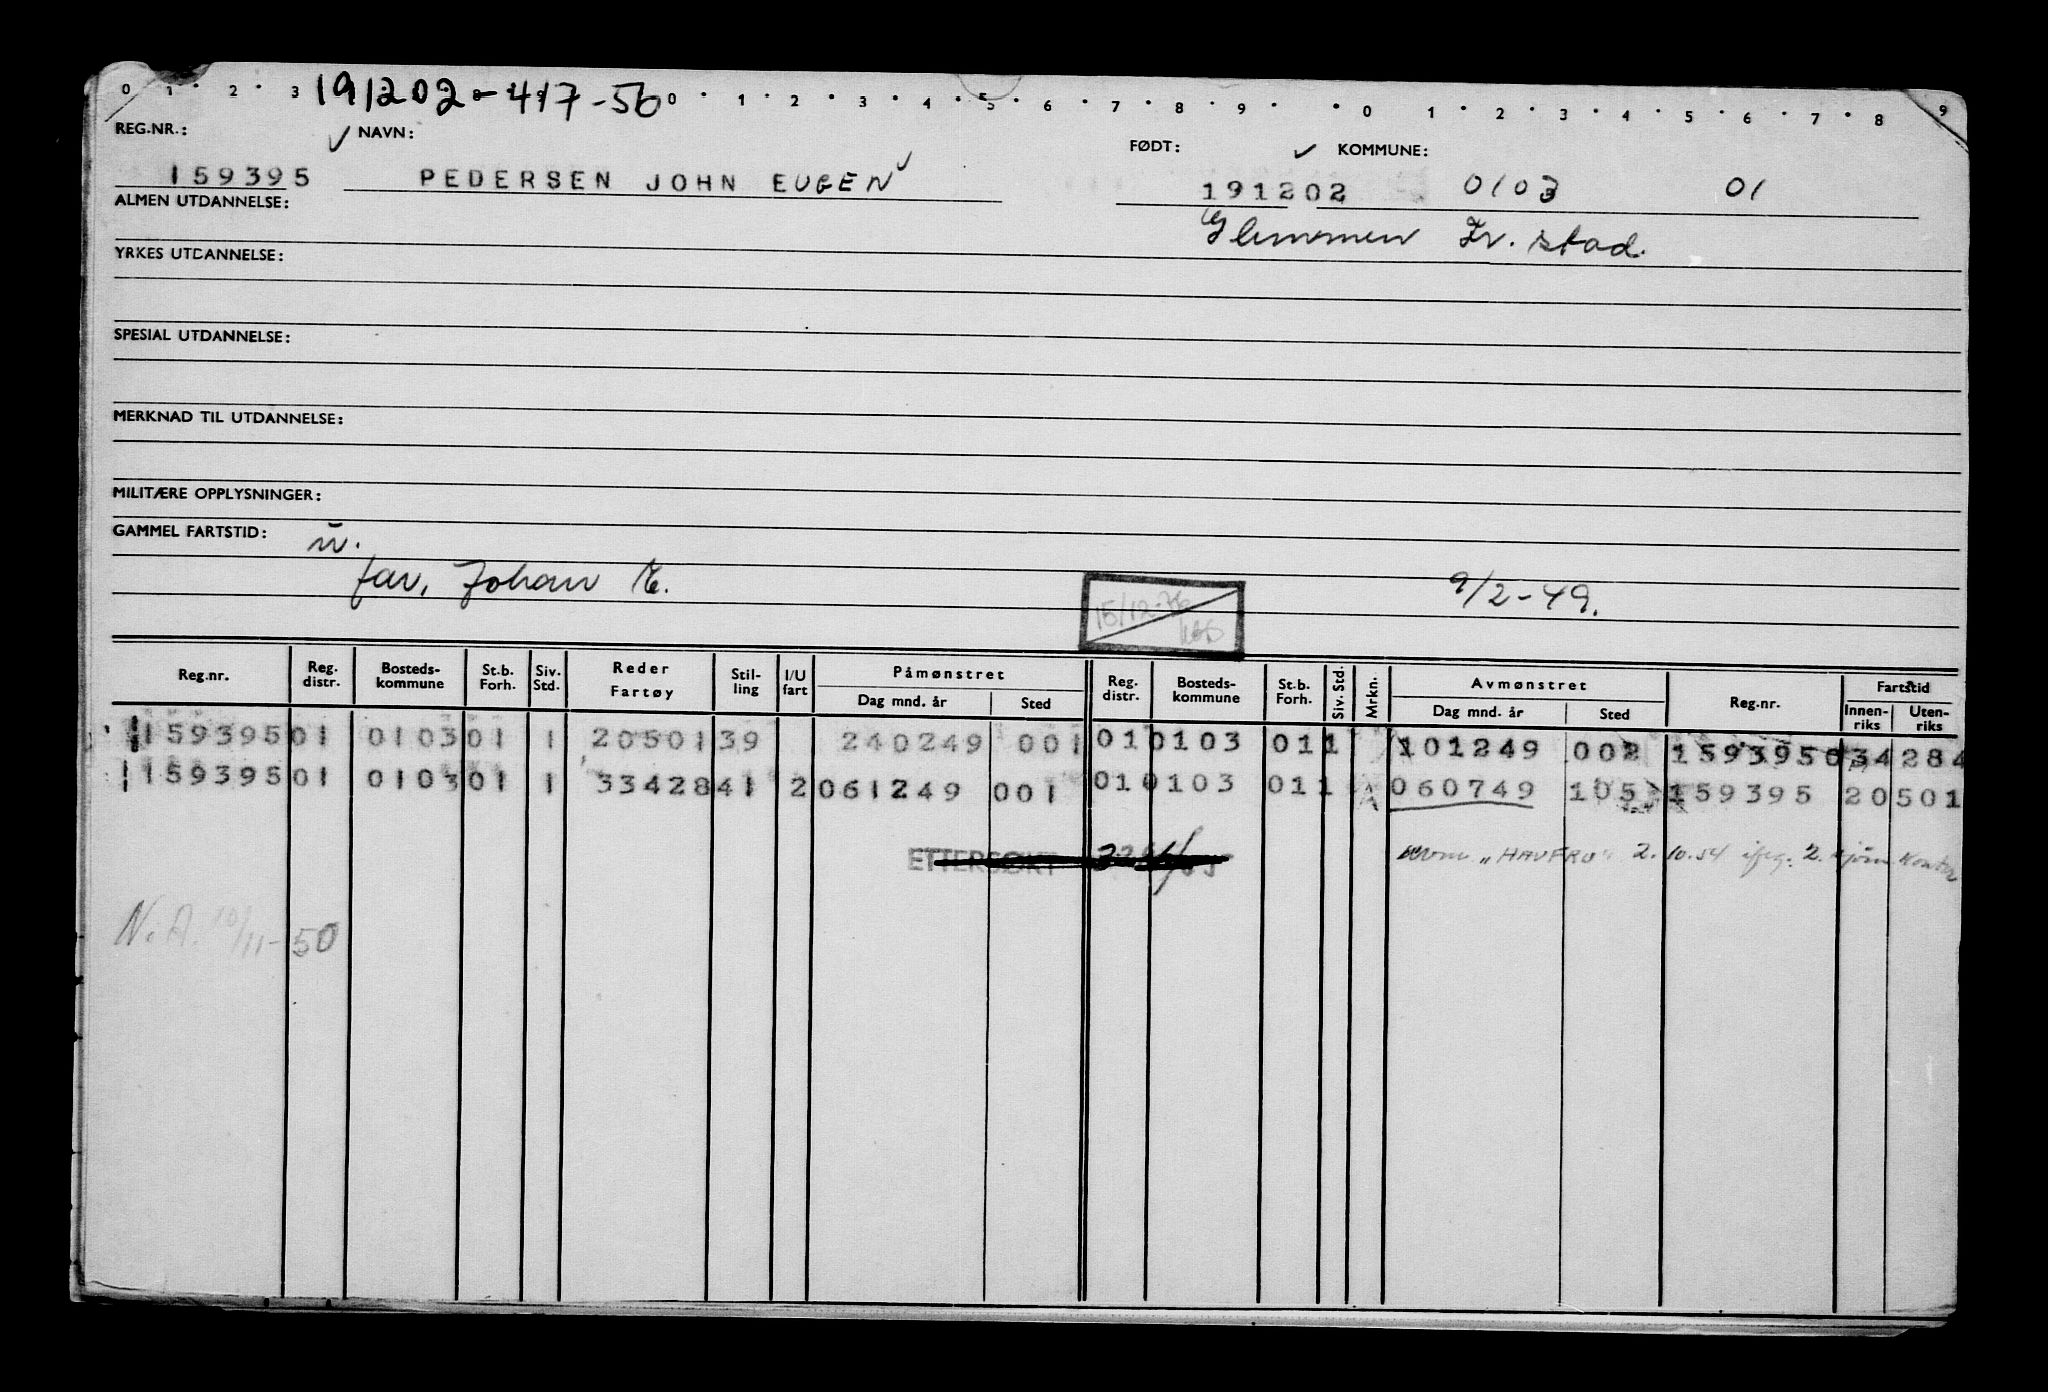 0 1 2 3 191202-417-56 0 1 2 3 4 5 6 7 8 9 0 1 2 3 4 5 6 7 8 9
REG.NR.: ✓ NAVN: FØDT: ✓ KOMMUNE:
159395 PEDERSEN JOHN EUGEN ✓ 191202 0103 01
ALMEN UTDANNELSE: Glemmen Fr.stad.
YRKES UTDANNELSE:
SPESIAL UTDANNELSE:
MERKNAD TIL UTDANNELSE:
MILITÆRE OPPLYSNINGER:
GAMMEL FARTSTID:
far, Johan E. 15/12-76 9/2-49.
Reg.nr. Reg. distr. Bosteds-kommune St.b. Forh. Siv. Std. Reder Fartøy Stil-ling I/U fart Påmønstret Dag mnd. år Sted Reg. distr. Bosteds-kommune St.b. Forh. Siv. Std. Mrkn. Avmønstret Dag mnd. år Sted Reg.nr. Fartstid Innen-riks Uten-riks
159395 01 0103 01 1 20501 39 240249 001 01 0103 01 1 101249 002 159395 034 284
159395 01 0103 01 1 33428 41 2 061249 001 01 0103 01 1 A 060749 105 159395 20501
ETTERSØKT
"HAUFRU" 2.10.54
N.A. 10/11-50